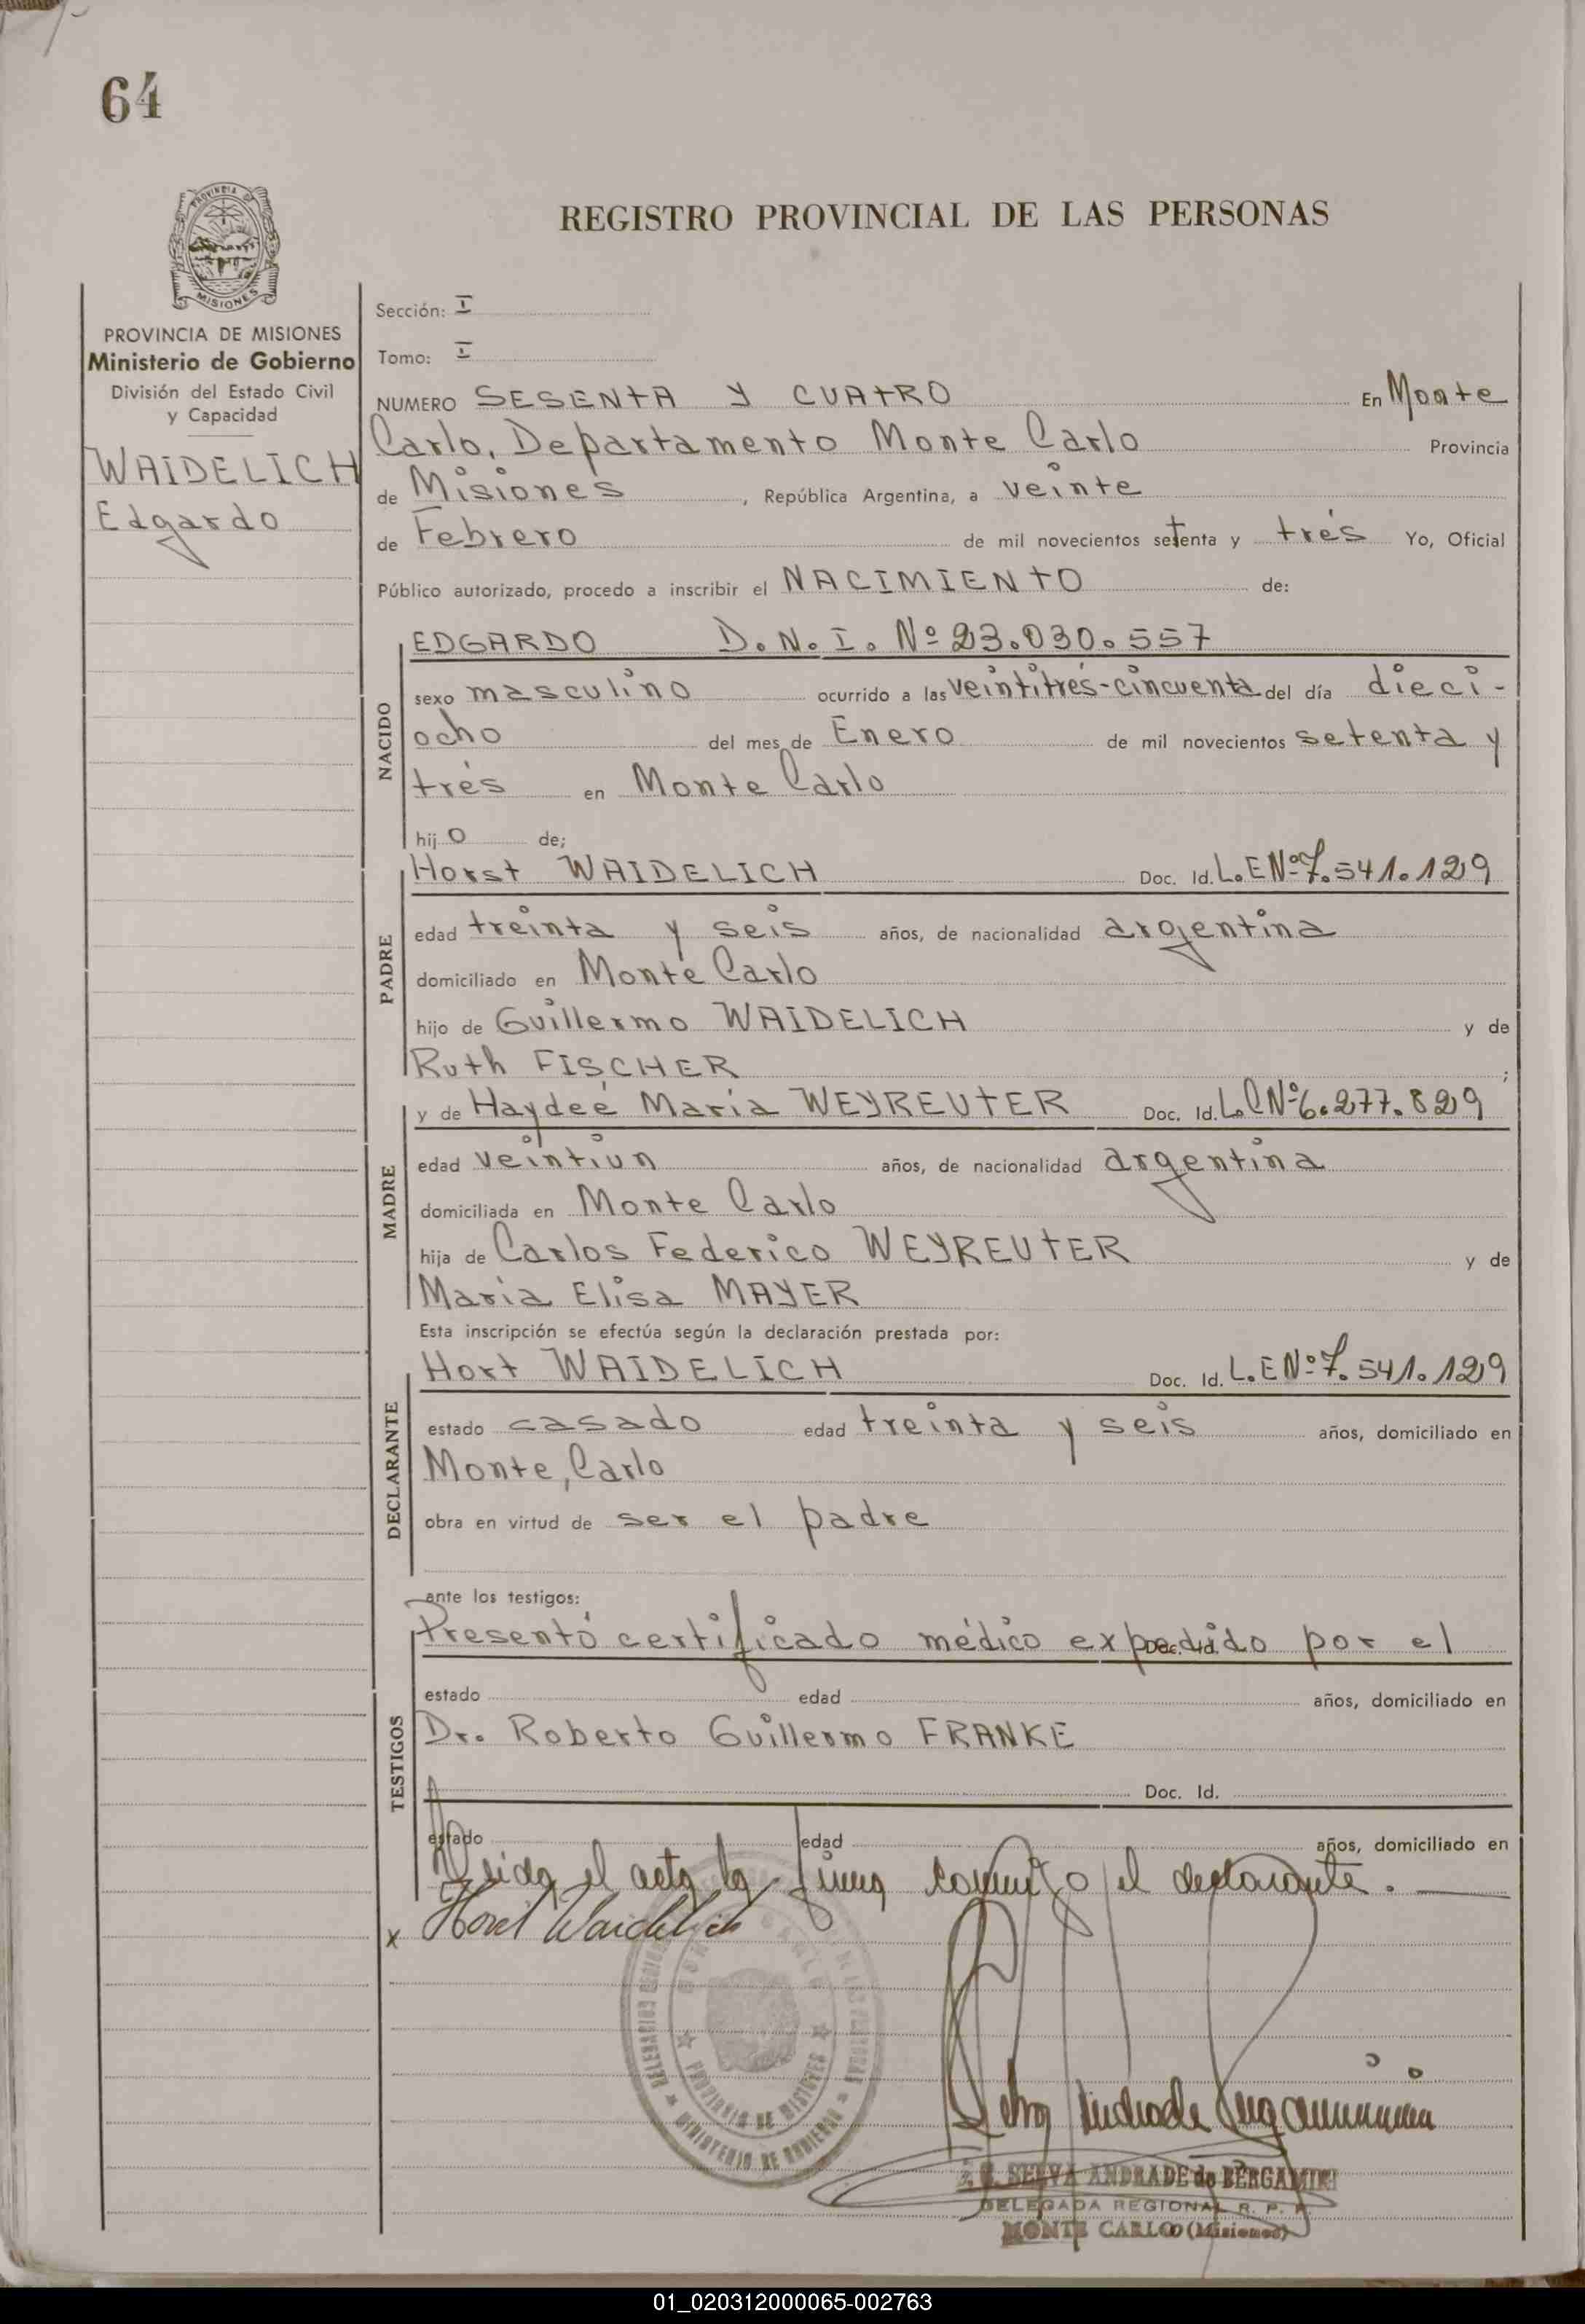 64
REGISTRO PROVINCIAL DE LAS PERSONAS
PROVINCIA DE MISIONES
Ministerio de Gobierno
División del Estado Civil
y Capacidad
WAIDELICH
Edgardo
Sección: I
Tomo: I
NUMERO SESENTA Y CUATRO En Monte
Carlo, Departamento Monte Carlo Provincia
de Misiones, República Argentina, a veinte
de Febrero de mil novecientos setenta y trés Yo, Oficial
Público autorizado, procedo a inscribir el NACIMIENTO de:
NACIDO
EDGARDO D.N.I. Nº 23.030.557
sexo masculino ocurrido a las veintitrés-cincuenta del día dieci-
ocho del mes de Enero de mil novecientos setenta y
trés en Monte Carlo
hijo de;
PADRE
Horst WAIDELICH Doc. Id. L.E Nº 7.541.129
edad treinta y seis años, de nacionalidad argentina
domiciliado en Monte Carlo
hijo de Guillermo WAIDELICH y de
Ruth FISCHER ;
MADRE
y de Haydeé Maria WEYREUTER Doc. Id. L.C Nº 6.277.829
edad veintiun años, de nacionalidad argentina
domiciliada en Monte Carlo
hija de Carlos Federico WEYREUTER y de
Maria Elisa MAYER
Esta inscripción se efectúa según la declaración prestada por:
DECLARANTE
Hort WAIDELICH Doc. Id. L.E Nº 7.541.129
estado casado edad treinta y seis años, domiciliado en
Monte, Carlo
obra en virtud de ser el padre
ante los testigos:
TESTIGOS
Presentó certificado médico expedido por el Doc. Id.
estado edad años, domiciliado en
Dr. Roberto Guillermo FRANKE
Doc. Id.
estado edad años, domiciliado en
Leida el acta la firma conmigo el declarante.
x Horst Waidelich
PROVINCIA DE MISIONES
MINISTERIO DE GOBIERNO
Selva Andrade Bergamini
SELVA ANDRADE de BERGAMINI
DELEGADA REGIONAL R. P. P.
MONTE CARLO (Misiones)
01_020312000065-002763